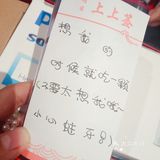 上上签
想我的
时候就吃一颗
(不要太想我哦~
小心蛀牙!)